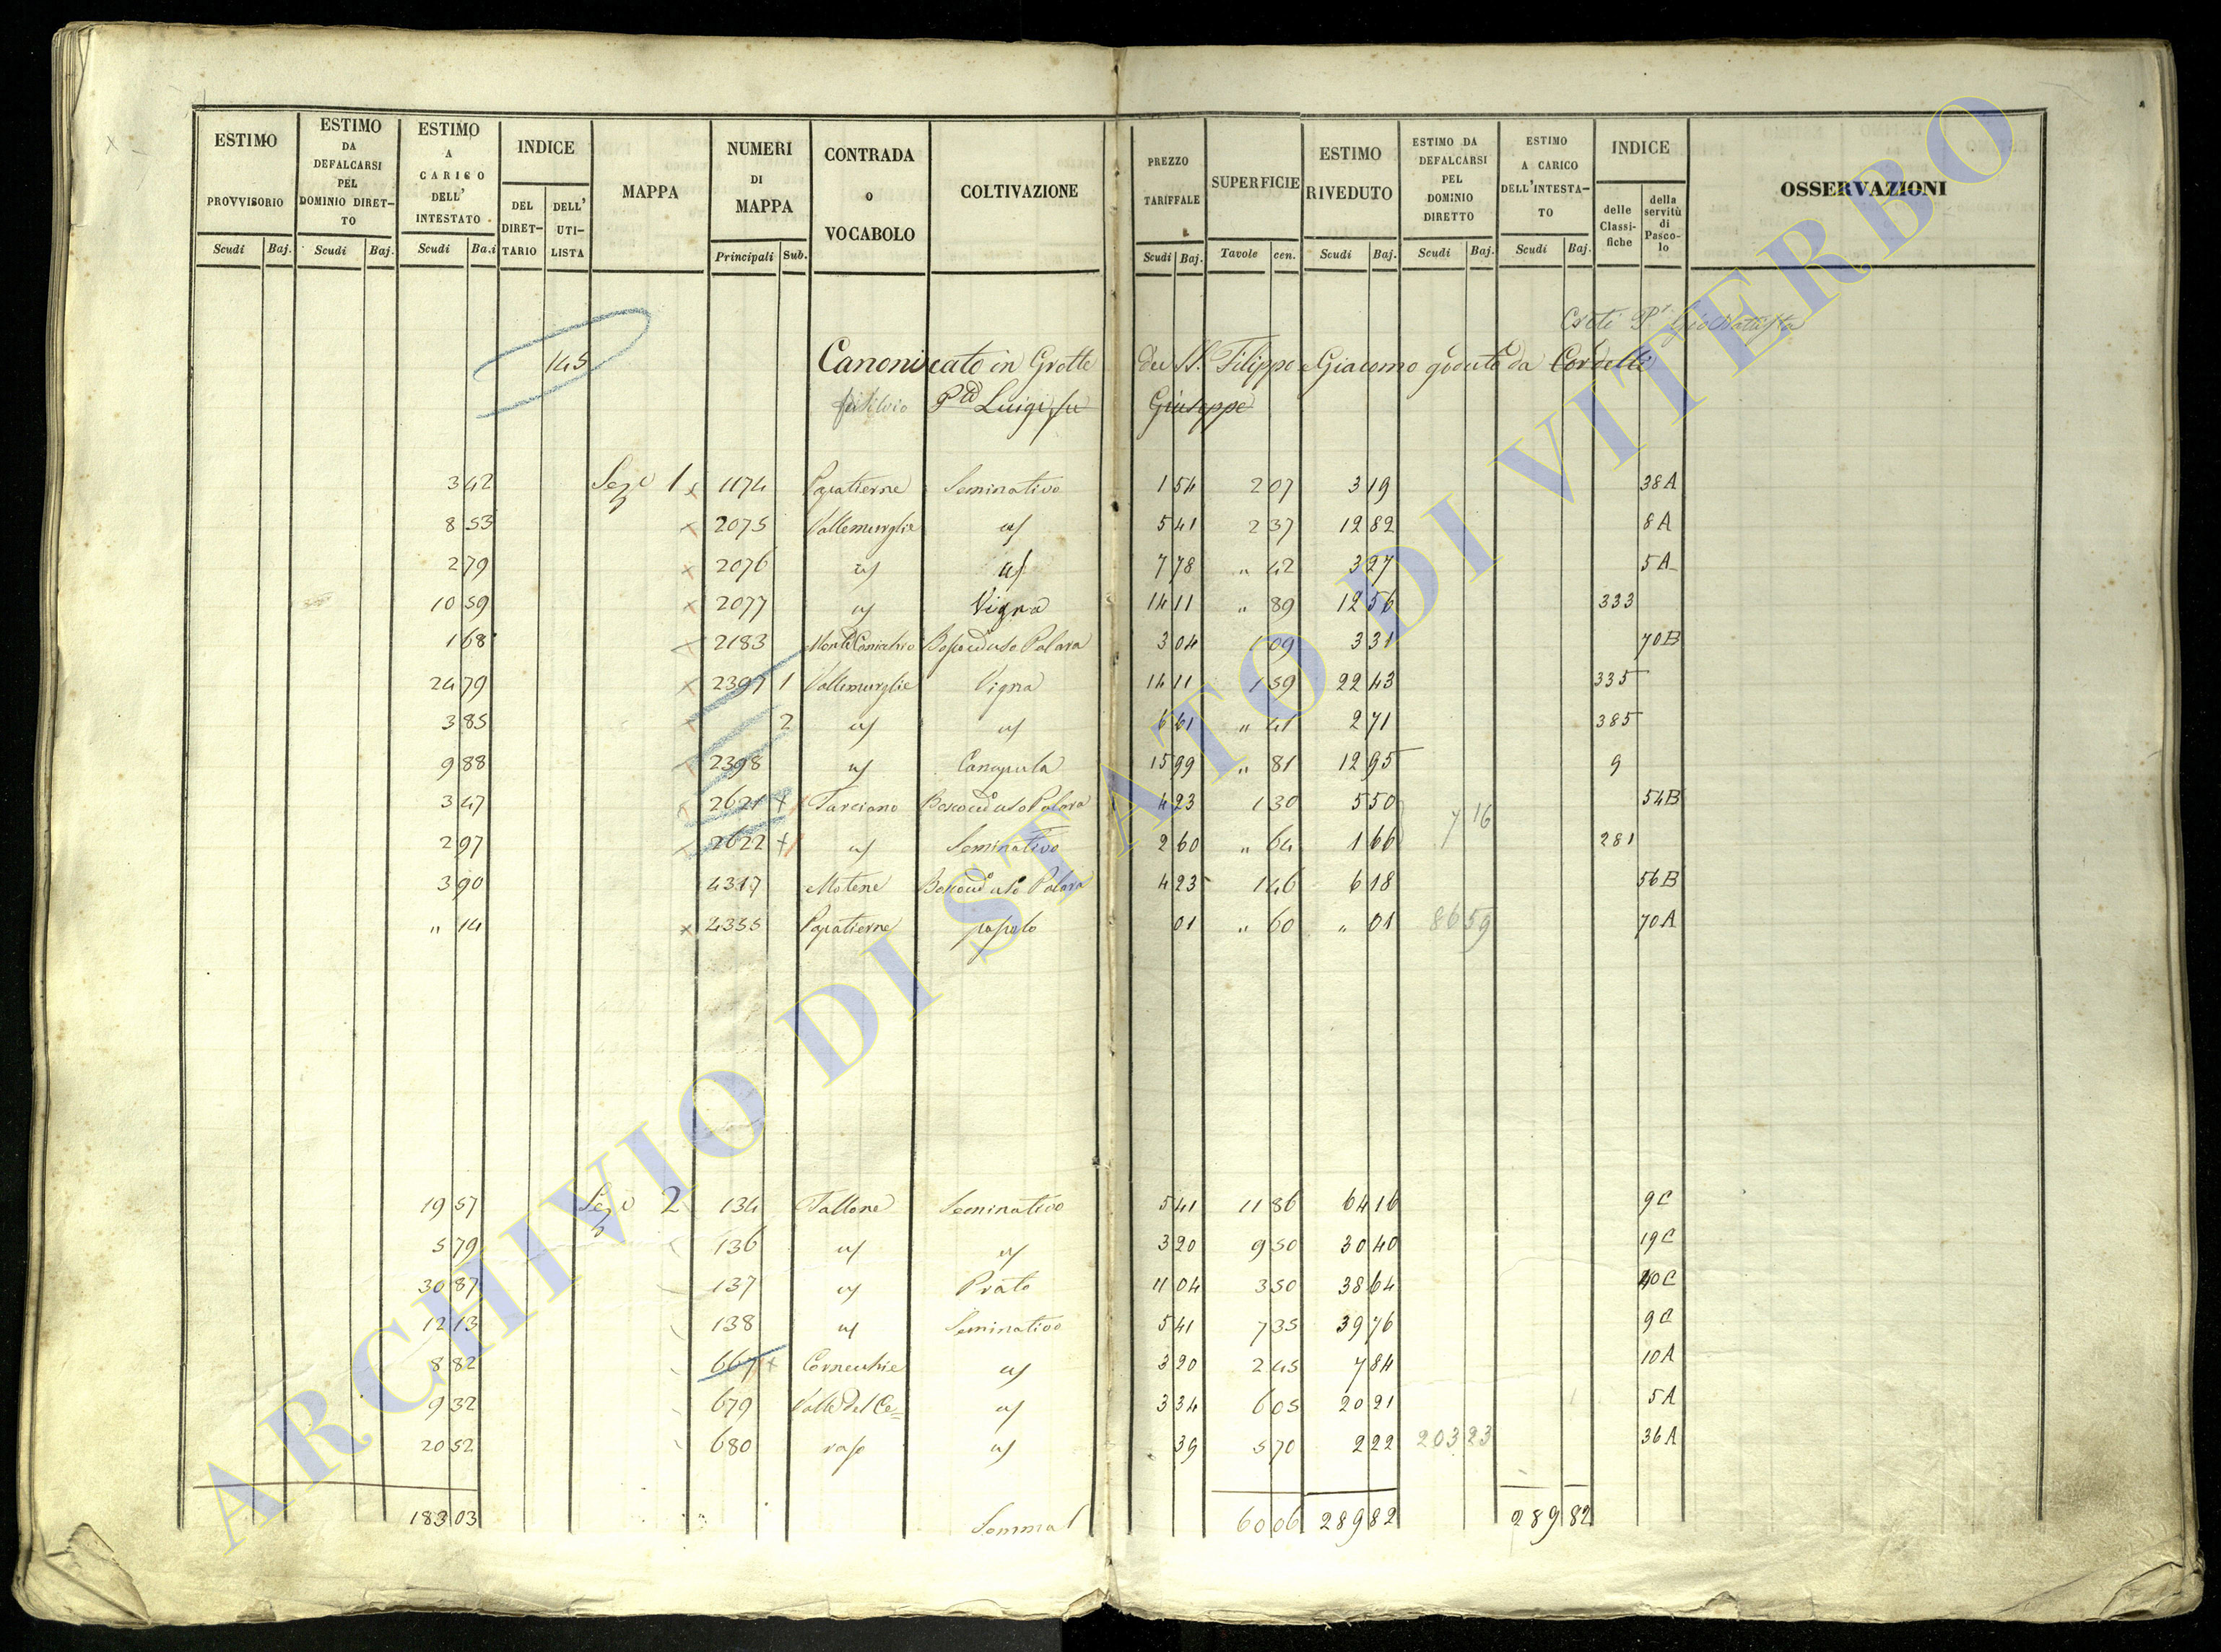 ESTIMO PROVVISORIO Scudi Baj. ESTIMO DA DEFALCARSI PEL DOMINIO DIRETTO Scudi Baj. ESTIMO A CARICO DELL' INTESTATO Scudi Ba.i INDICE DEL DIRETTARIO DELL' UTILISTA MAPPA NUMERI DI MAPPA Principali Sub. CONTRADA o VOCABOLO COLTIVAZIONE PREZZO TARIFFALE Scudi Baj. SUPERFICIE Tavole cen. ESTIMO RIVEDUTO Scudi Baj. ESTIMO DA DEFALCARSI PEL DOMINIO DIRETTO Scudi Baj. ESTIMO A CARICO DELL'INTESTATO Scudi Baj. INDICE delle Classifiche della servitù di Pascolo OSSERVAZIONI
145 Canonicato in Grotte dei SS. Filippo e Giacomo goduto da Cordelli
Luigi fu Giuseppe
3 42 Seze 1 x 1174 Papatierne Seminativo 1 54 2 07 3 19 38A
8 53 x 2075 Vallemurglie us 5 41 2 37 12 82 8A
2 79 x 2076 us us 7 78 " 42 3 27 5A
10 59 x 2077 us Vigna 14 11 " 89 12 56 333
1 68 x 2183 3 04 1 09 3 31 70B
24 79 x 2397 1 Vallemurglie Vigna 14 11 1 59 22 43 335
3 85 2 us us 6 61 " 41 2 71 385
9 88 2398 us Canapula 15 99 " 81 12 95 9
3 47 2621 + Tarciano 4 23 1 30 5 50 54B
7 16
2 97 2622 + us Seminativo 2 60 " 64 1 66 281
3 90 4317 Motene 4 23 1 46 6 18 56B
" 14 x 4355 Papatierne pascolo 01 " 60 " 01 86 59 70A
19 57 Seze 2 134 Tallone Seminativo 5 41 11 86 64 16 9C
5 79 136 us us 3 20 9 50 30 40 19C
30 87 137 us Prato 11 04 3 50 38 64 40C
12 13 138 us Seminativo 5 41 7 35 39 76 9C
8 82 667 + Cornecchie us 3 20 2 45 7 84 10A
9 32 679 Valle del Ce= us 3 34 6 05 20 21 5A
20 52 680 raso us 39 5 70 2 22 203 23 36A
183 03 Somma 60 06 289 82 289 82
ARCHIVIO DI STATO DI VITERBO